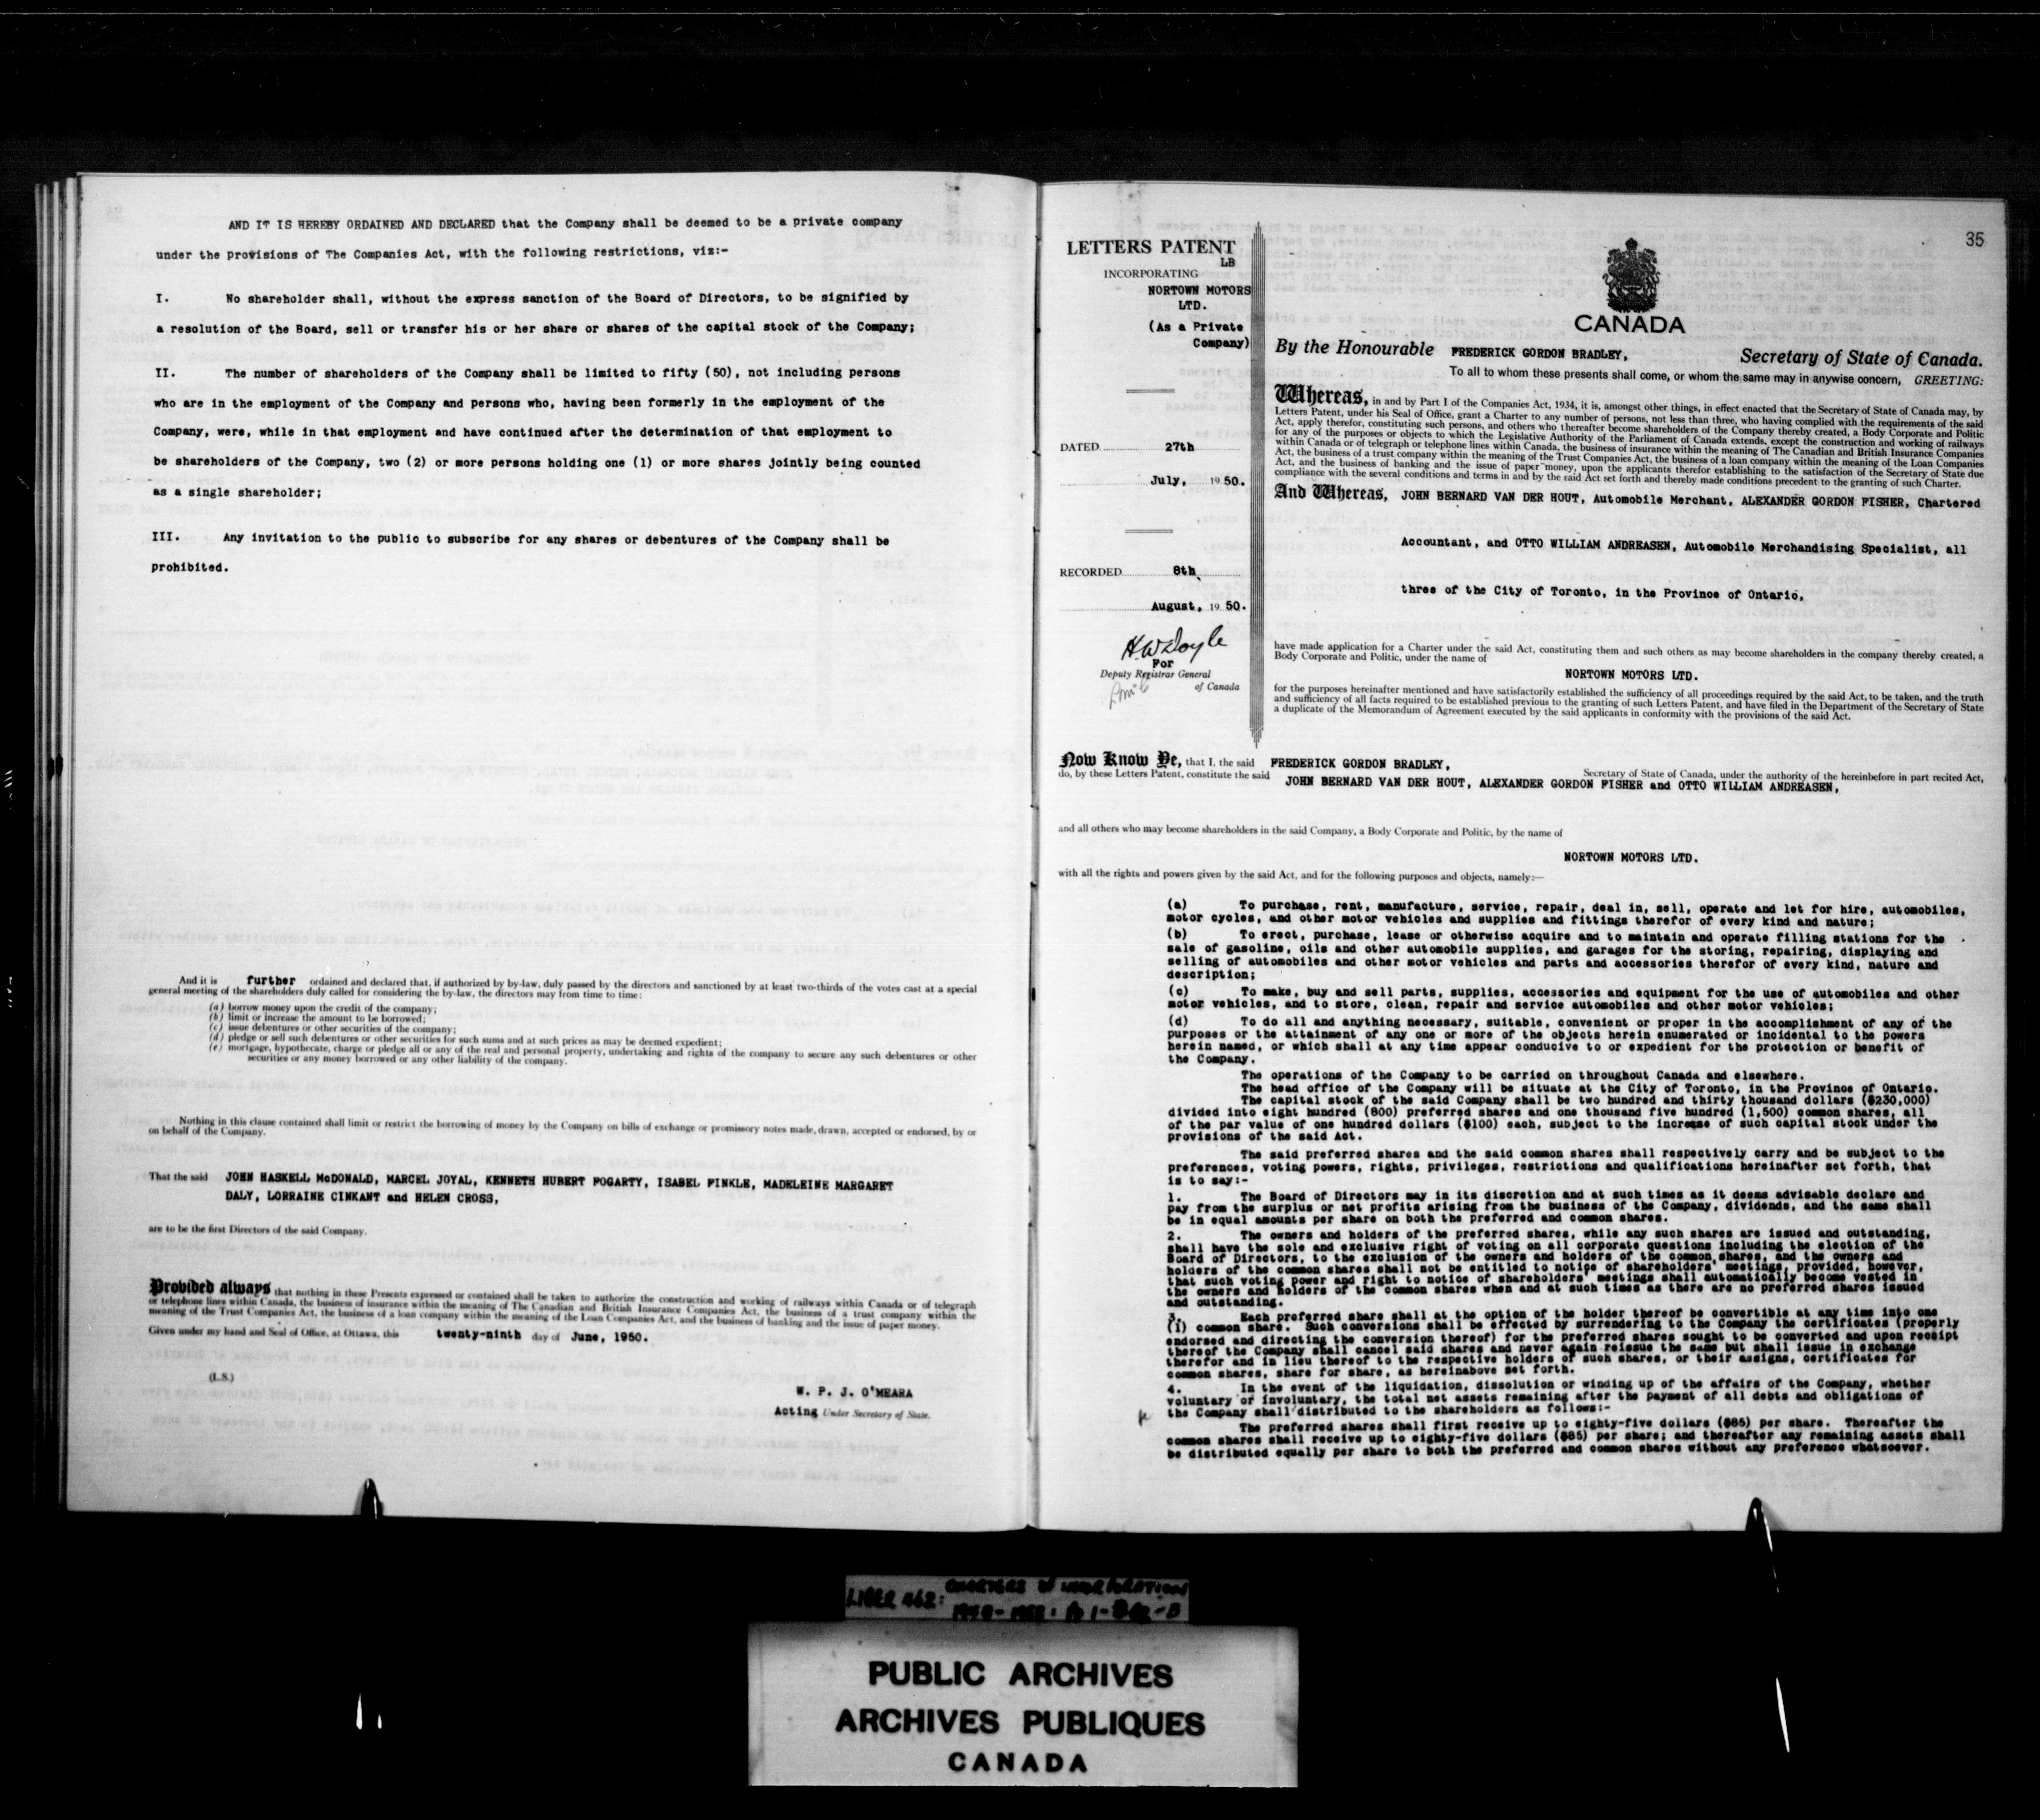 AND IT IS HEREBY ORDAINED AND DECLARED that the Company shall be deemed to be a private company
under the provisions of The Companies Act, with the following restrictions, viz:-
I. No shareholder shall, without the express sanction of the Board of Directors, to be signified by
a resolution of the Board, sell or transfer his or her share or shares of the capital stock of the Company;
II. The number of shareholders of the Company shall be limited to fifty (50), not including persons
who are in the employment of the Company and persons who, having been formerly in the employment of the
Company, were, while in that employment and have continued after the determination of that employment to
be shareholders of the Company, two (2) or more persons holding one (1) or more shares jointly being counted
as a single shareholder;
III. Any invitation to the public to subscribe for any shares or debentures of the Company shall be
prohibited.
And it is further ordained and declared that, if authorized by by-law, duly passed by the directors and sanctioned by at least two-thirds of the votes cast at a special
general meeting of the shareholders duly called for considering the by-law, the directors may from time to time:
(a) borrow money upon the credit of the company;
(b) limit or increase the amount to be borrowed;
(c) issue debentures or other securities of the company;
(d) pledge or sell such debentures or other securities for such sums and at such prices as may be deemed expedient;
(e) mortgage, hypothecate, charge or pledge all or any of the real and personal property, undertaking and rights of the company to secure any such debentures or other
securities or any money borrowed or any other liability of the company.
Nothing in this clause contained shall limit or restrict the borrowing of money by the Company on bills of exchange or promissory notes made, drawn, accepted or endorsed, by or
on behalf of the Company.
That the said JOHN HASKELL McDONALD, MARCEL JOYAL, KENNETH HUBERT FOGARTY, ISABEL FINKLE, MADELEINE MARGARET
DALY, LORRAINE CINKANT and HELEN CROSS,
are to be the first Directors of the said Company.
Provided always that nothing in these Presents expressed or contained shall be taken to authorize the construction and working of railways within Canada or of telegraph
or telephone lines within Canada, the business of insurance within the meaning of The Canadian and British Insurance Companies Act, the business of a trust company within the
meaning of the Trust Companies Act, the business of a loan company within the meaning of the Loan Companies Act, and the business of banking and the issue of paper money.
Given under my hand and Seal of Office, at Ottawa, this twenty-ninth day of June, 1950.
(L.S.)
W. P. J. O'MEARA
Acting Under Secretary of State.
35
LETTERS PATENT
LB
INCORPORATING
NORTOWN MOTORS
LTD.
(As a Private
Company)
DATED 27th
July, 1950.
RECORDED 8th
August, 1950.
H W Doyle
For
Deputy Registrar General
of Canada
CANADA
By the Honourable FREDERICK GORDON BRADLEY, Secretary of State of Canada.
To all to whom these presents shall come, or whom the same may in anywise concern, GREETING:
Whereas, in and by Part I of the Companies Act, 1934, it is, amongst other things, in effect enacted that the Secretary of State of Canada may, by
Letters Patent, under his Seal of Office, grant a Charter to any number of persons, not less than three, who having complied with the requirements of the said
Act, apply therefor, constituting such persons, and others who thereafter become shareholders of the Company thereby created, a Body Corporate and Politic
for any of the purposes or objects to which the Legislative Authority of the Parliament of Canada extends, except the construction and working of railways
within Canada or of telegraph or telephone lines within Canada, the business of insurance within the meaning of The Canadian and British Insurance Companies
Act, the business of a trust company within the meaning of the Trust Companies Act, the business of a loan company within the meaning of the Loan Companies
Act, and the business of banking and the issue of paper money, upon the applicants therefor establishing to the satisfaction of the Secretary of State due
compliance with the several conditions and terms in and by the said Act set forth and thereby made conditions precedent to the granting of such Charter.
And Whereas, JOHN BERNARD VAN DER HOUT, Automobile Merchant, ALEXANDER GORDON FISHER, Chartered
Accountant, and OTTO WILLIAM ANDREASEN, Automobile Merchandising Specialist, all
three of the City of Toronto, in the Province of Ontario,
have made application for a Charter under the said Act, constituting them and such others as may become shareholders in the company thereby created, a
Body Corporate and Politic, under the name of
NORTOWN MOTORS LTD.
for the purposes hereinafter mentioned and have satisfactorily established the sufficiency of all proceedings required by the said Act, to be taken, and the truth
and sufficiency of all facts required to be established previous to the granting of such Letters Patent, and have filed in the Department of the Secretary of State
a duplicate of the Memorandum of Agreement executed by the said applicants in conformity with the provisions of the said Act.
Now Know Ye, that I, the said FREDERICK GORDON BRADLEY,
Secretary of State of Canada, under the authority of the hereinbefore in part recited Act,
do, by these Letters Patent, constitute the said JOHN BERNARD VAN DER HOUT, ALEXANDER GORDON FISHER and OTTO WILLIAM ANDREASEN,
and all others who may become shareholders in the said Company, a Body Corporate and Politic, by the name of
NORTOWN MOTORS LTD.
with all the rights and powers given by the said Act, and for the following purposes and objects, namely:—
(a) To purchase, rent, manufacture, service, repair, deal in, sell, operate and let for hire, automobiles,
motor cycles, and other motor vehicles and supplies and fittings therefor of every kind and nature;
(b) To erect, purchase, lease or otherwise acquire and to maintain and operate filling stations for the
sale of gasoline, oils and other automobile supplies, and garages for the storing, repairing, displaying and
selling of automobiles and other motor vehicles and parts and accessories therefor of every kind, nature and
description;
(c) To make, buy and sell parts, supplies, accessories and equipment for the use of automobiles and other
motor vehicles, and to store, clean, repair and service automobiles and other motor vehicles;
(d) To do all and anything necessary, suitable, convenient or proper in the accomplishment of any of the
purposes or the attainment of any one or more of the objects herein enumerated or incidental to the powers
herein named, or which shall at any time appear conducive to or expedient for the protection or benefit of
the Company.
The operations of the Company to be carried on throughout Canada and elsewhere.
The head office of the Company will be situate at the City of Toronto, in the Province of Ontario.
The capital stock of the said Company shall be two hundred and thirty thousand dollars ($230,000)
divided into eight hundred (800) preferred shares and one thousand five hundred (1,500) common shares, all
of the par value of one hundred dollars ($100) each, subject to the increase of such capital stock under the
provisions of the said Act.
The said preferred shares and the said common shares shall respectively carry and be subject to the
preferences, voting powers, rights, privileges, restrictions and qualifications hereinafter set forth, that
is to say:-
1. The Board of Directors may in its discretion and at such times as it deems advisable declare and
pay from the surplus or net profits arising from the business of the Company, dividends, and the same shall
be in equal amounts per share on both the preferred and common shares.
2. The owners and holders of the preferred shares, while any such shares are issued and outstanding,
shall have the sole and exclusive right of voting on all corporate questions including the election of the
Board of Directors, to the exclusion of the owners and holders of the common shares, and the owners and
holders of the common shares shall not be entitled to notice of shareholders' meetings, provided, however,
that such voting power and right to notice of shareholders' meetings shall automatically become vested in
the owners and holders of the common shares when and at such times as there are no preferred shares issued
and outstanding.
3. Each preferred share shall at the option of the holder thereof be convertible at any time into one
(1) common share. Such conversions shall be effected by surrendering to the Company the certificates (properly
endorsed and directing the conversion thereof) for the preferred shares sought to be converted and upon receipt
thereof the Company shall cancel said shares and never again reissue the same but shall issue in exchange
therefor and in lieu thereof to the respective holders of such shares, or their assigns, certificates for
common shares, share for share, as hereinabove set forth.
4. In the event of the liquidation, dissolution or winding up of the affairs of the Company, whether
voluntary or involuntary, the total net assets remaining after the payment of all debts and obligations of
the Company shall distributed to the shareholders as follows:-
The preferred shares shall first receive up to eighty-five dollars ($85) per share. Thereafter the
common shares shall receive up to eighty-five dollars ($85) per share; and thereafter any remaining assets shall
be distributed equally per share to both the preferred and common shares without any preference whatsoever.
LIBER 462: CHARTERS OF INCORPORATIONS
PUBLIC ARCHIVES
ARCHIVES PUBLIQUES
CANADA